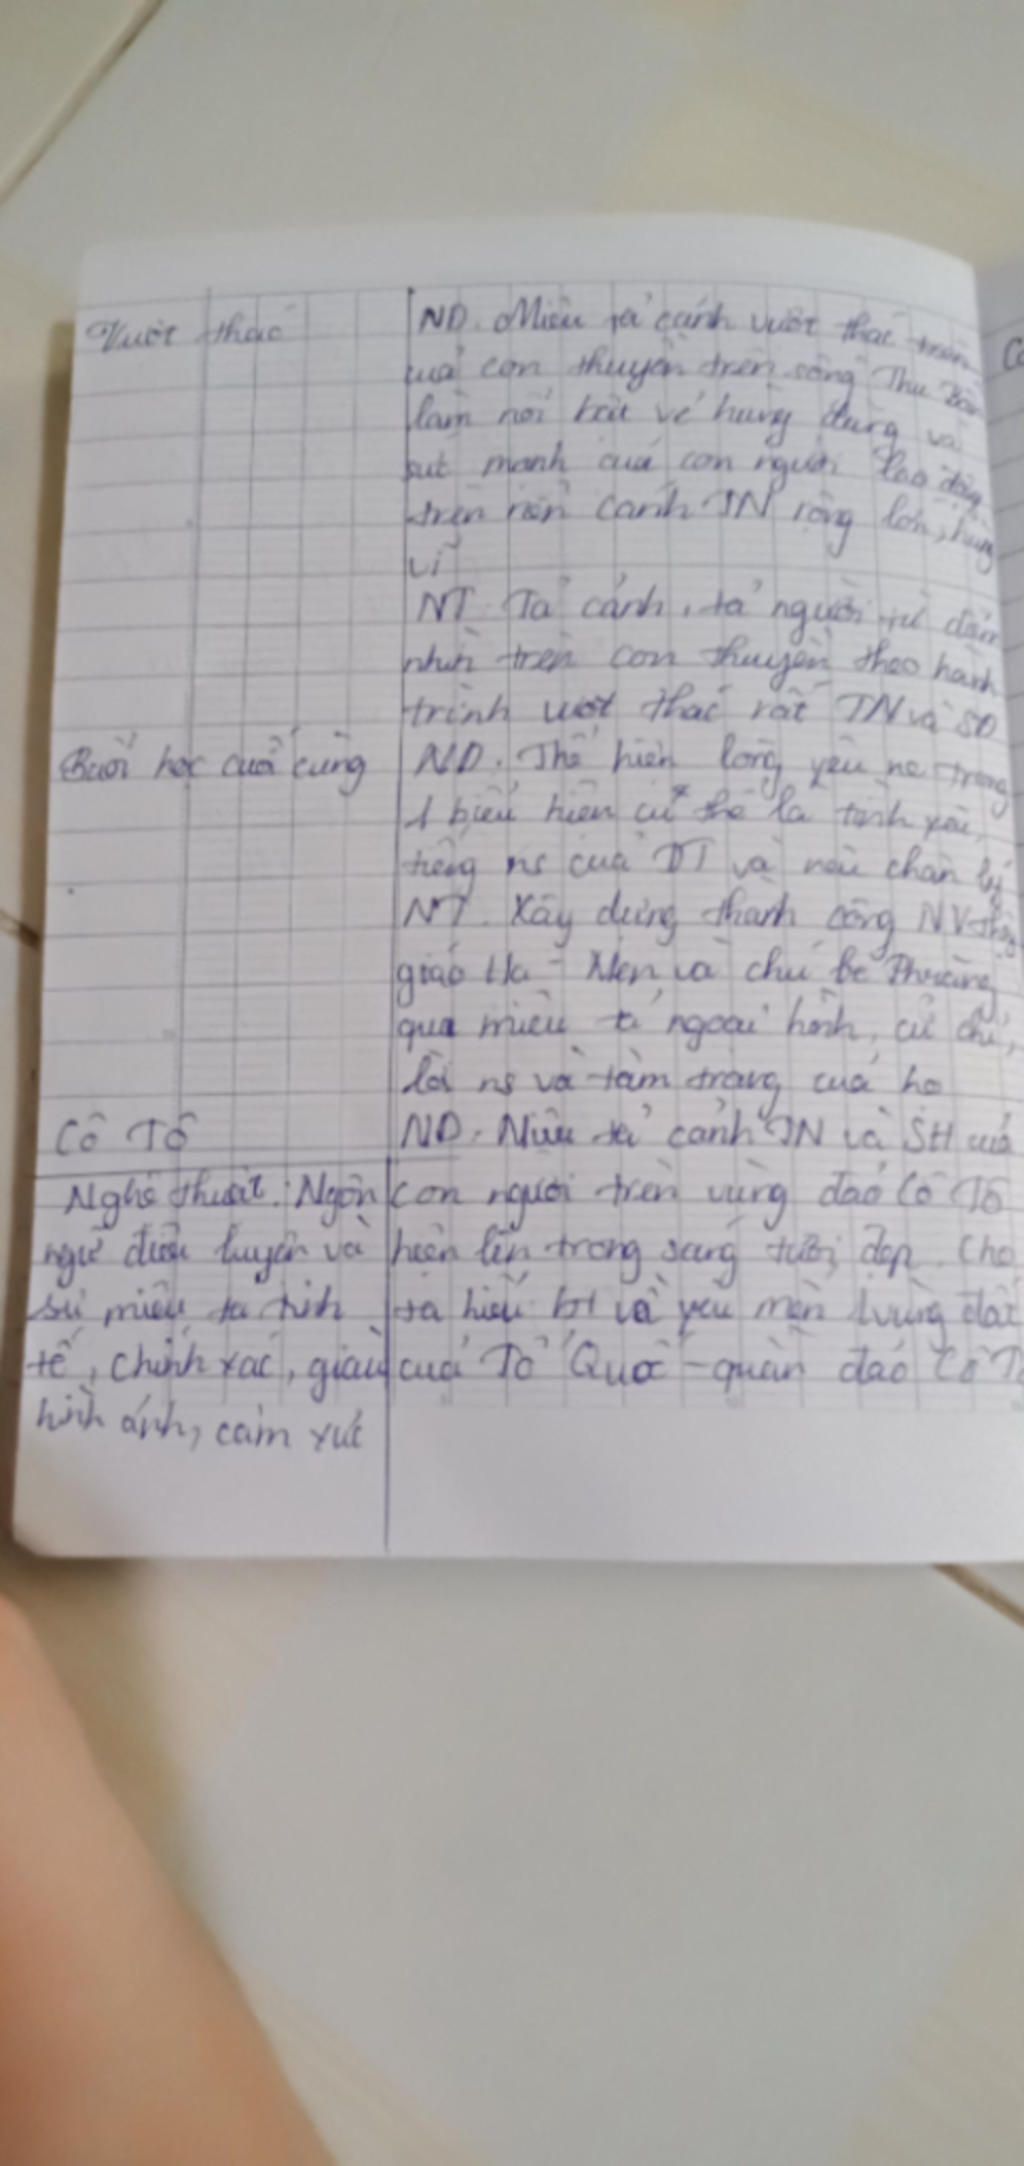 Vượt thác
ND. Miêu tả cảnh vượt thác
của con thuyền trên sông Thu Bồn
làm nổi bật vẻ hùng dũng và
sức mạnh của con người lao động
trên nền cảnh TN rộng lớn, hùng
vĩ
NT. Tả cảnh, tả người từ điểm
nhìn trên con thuyền theo hành
trình vượt thác rất TN và SĐ
Buổi học cuối cùng
ND. Thể hiện lòng yêu nc trong
1 biểu hiện cụ thể là tình yêu
tiếng ns của DT và nêu chân lý
NT. Xây dựng thành công NV thầy
giáo Ha-Men và chú bé Phrăng
qua miêu tả ngoại hình, cử chỉ,
lời ns và tâm trạng của họ
Cô Tô
ND. Miêu tả cảnh TN và SH của
con người trên vùng đảo Cô Tô
hiện lên trong sáng tươi đẹp. Cho
ta hiểu bt và yêu mến 1 vùng đất
của Tổ Quốc - quần đảo Cô
Nghệ thuật: Ngôn
ngữ điêu luyện và
sự miêu tả tinh
tế, chính xác, giàu
hình ảnh, cảm xúc